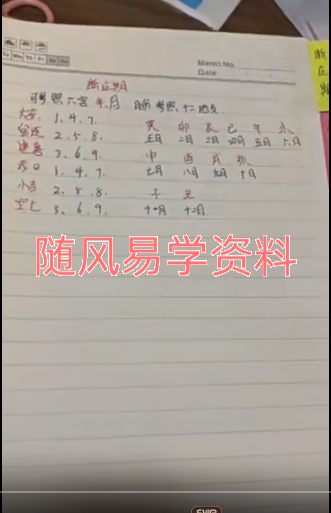 Memo No.
Date
断应期
断应期
可参照六宫年月 月份参照十二地支
大安 1.4.7.
留连 2.5.8.
速喜 3.6.9.
赤口 1.4.7.
小吉 2.5.8.
空亡 3.6.9.
寅 卯 辰 巳 午 未
正月 二月 三月 四月 五月 六月
申 酉 戌 亥
七月 八月 九月 十月
子 丑
十一月 十二月
随风易学资料